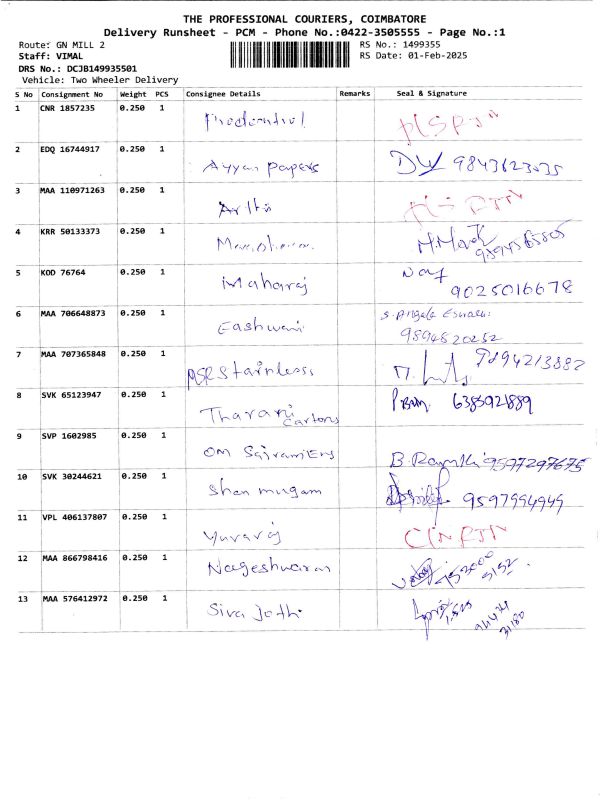 THE PROFESSIONAL COURIERS, COIMBATORE
Delivery Runsheet - PCM - Phone No.:0422-3505555 - Page No.:1
Route: GN MILL 2 RS No.: 1499355
Staff: VIMAL RS Date: 01-Feb-2025
DRS No.: DCJB149935501
Vehicle: Two Wheeler Delivery
S No Consignment No Weight PCS Consignee Details Remarks Seal & Signature
1 CNR 1857235 0.250 1
2 EDQ 16744917 0.250 1 Ayyan papers 9843623035
3 MAA 110971263 0.250 1
4 KRR 50133373 0.250 1
5 KOD 76764 0.250 1 Maharaj 9025016678
6 MAA 706648873 0.250 1 Eashwari S. Angela 9894520252
7 MAA 707365848 0.250 1 Stainless
8 SVK 65123947 0.250 1 Tharani Cartons 6385921889
9 SVP 1602985 0.250 1 Om B. 9597297675
10 SVK 30244621 0.250 1 Shanmugam 9597994949
11 VPL 406137807 0.250 1 Yuvaraj
12 MAA 866798416 0.250 1 Nageshwaran
13 MAA 576412972 0.250 1 Siva Jothi